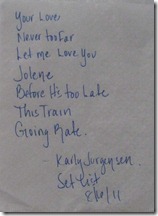 Your Love
Never too Far
Let me Love You
Jolene
Before It's too Late
This Train
Going Rate.
Karly Jurgensen.
Set list
8/10/11